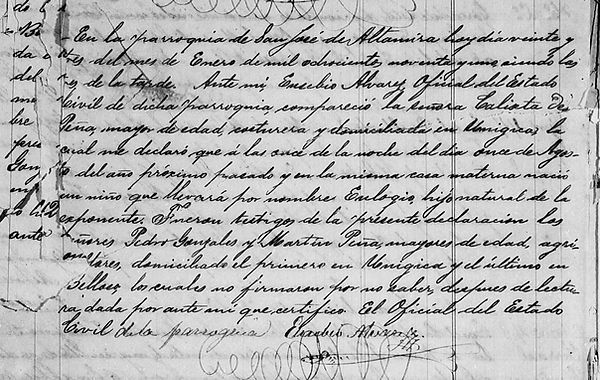 En la parroquia de San José de Altamira hoy dia veinte y
tres del mes de Enero de mil ochociento, noventa y uno siendo las
de la tarde. Ante mi, Eusebio Alvarez, Oficial del Estado
Civil de dicha parroquia compareció la señora Calista De
Peña, mayor de edad, costurera y domiciliada en Umigica, la
cual me declaró, que a las once de la noche del dia once de Agos
to del año próximo pasado y en la misma casa materna nació
un niño que llevará por nombre Eulogio, hijo natural de la
exponente. Fueron testigos de la presente declaracion los
señores Pedro Gonzales y Martin Peña, mayores de edad, agri
tores, domiciliado el primero en Umigica y el último en
los cuales no firmaron por no saber, despues de lectu
ra, dada por ante mi que, certifico. El Oficial del Estado
Civil de la parroquia Eusebio Alvarez